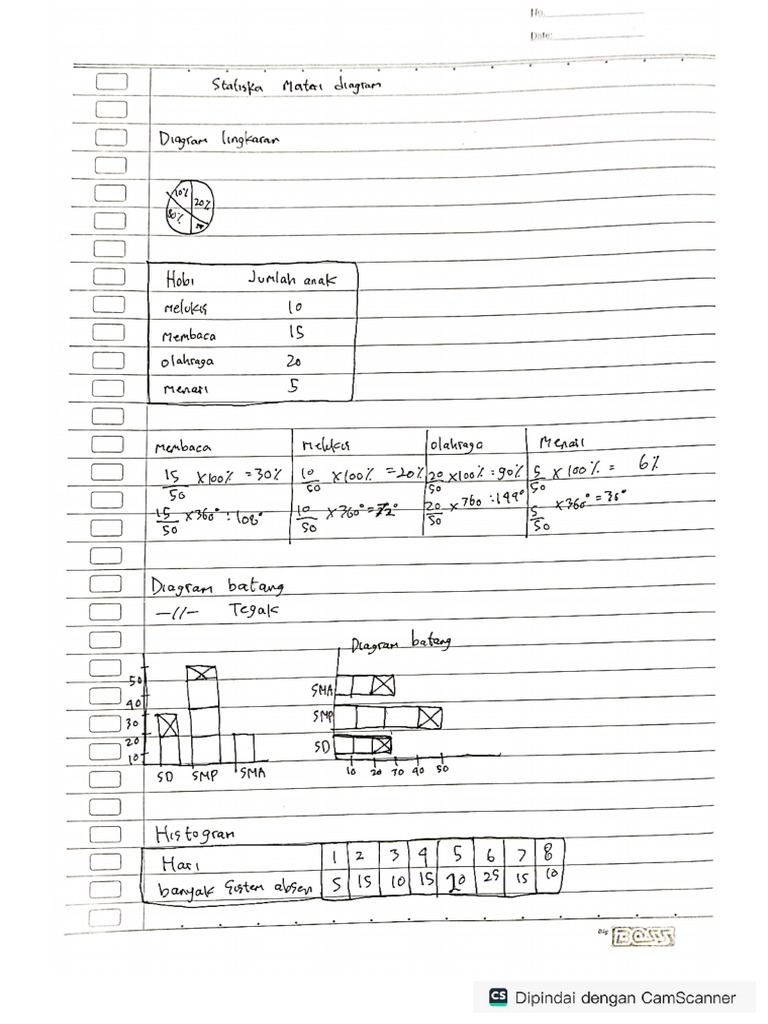 No.
Date:
Statiska Materi diagram
Diagram lingkaran
10% 20%
80%
Hobi Jumlah anak
Melukis 10
Membaca 15
olahraga 20
Menari 5
Membaca Melukis olahraga Menari
15/50 x 100% = 30% 10/50 x 100% = 20% 20/50 x 100% : 90% 5/50 x 100% = 6%
15/50 x 360° : 108° 10/50 x 360° = 72° 20/50 x 760 : 149° 5/50 x 360° = 36°
Diagram batang
-//- Tegak
Diagram batang
50
40
30
20
10
SD SMP SMA
SMA
SMP
SD
10 20 30 40 50
Histogram
Hari 1 2 3 4 5 6 7 8
banyak absen 5 15 10 15 20 25 15 10
BOSS
CS Dipindai dengan CamScanner